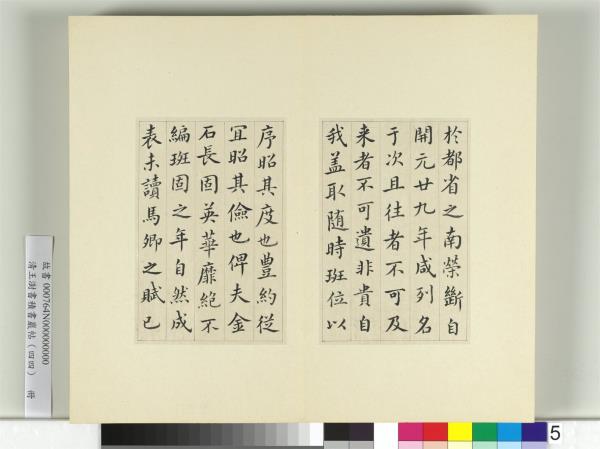 於都省之南榮斷自
開元廿九年咸列名
于次且往者不可及
来者不可遺非貴自
我盖取随時班位以
序昭其度也豊約従
宜昭其儉也俾夫金
石長固英華靡絕不
編班固之年自然成
表未讀馬卿之賦已
故書 000764N000000000
清王澍書積書巖帖（四四） 冊
5